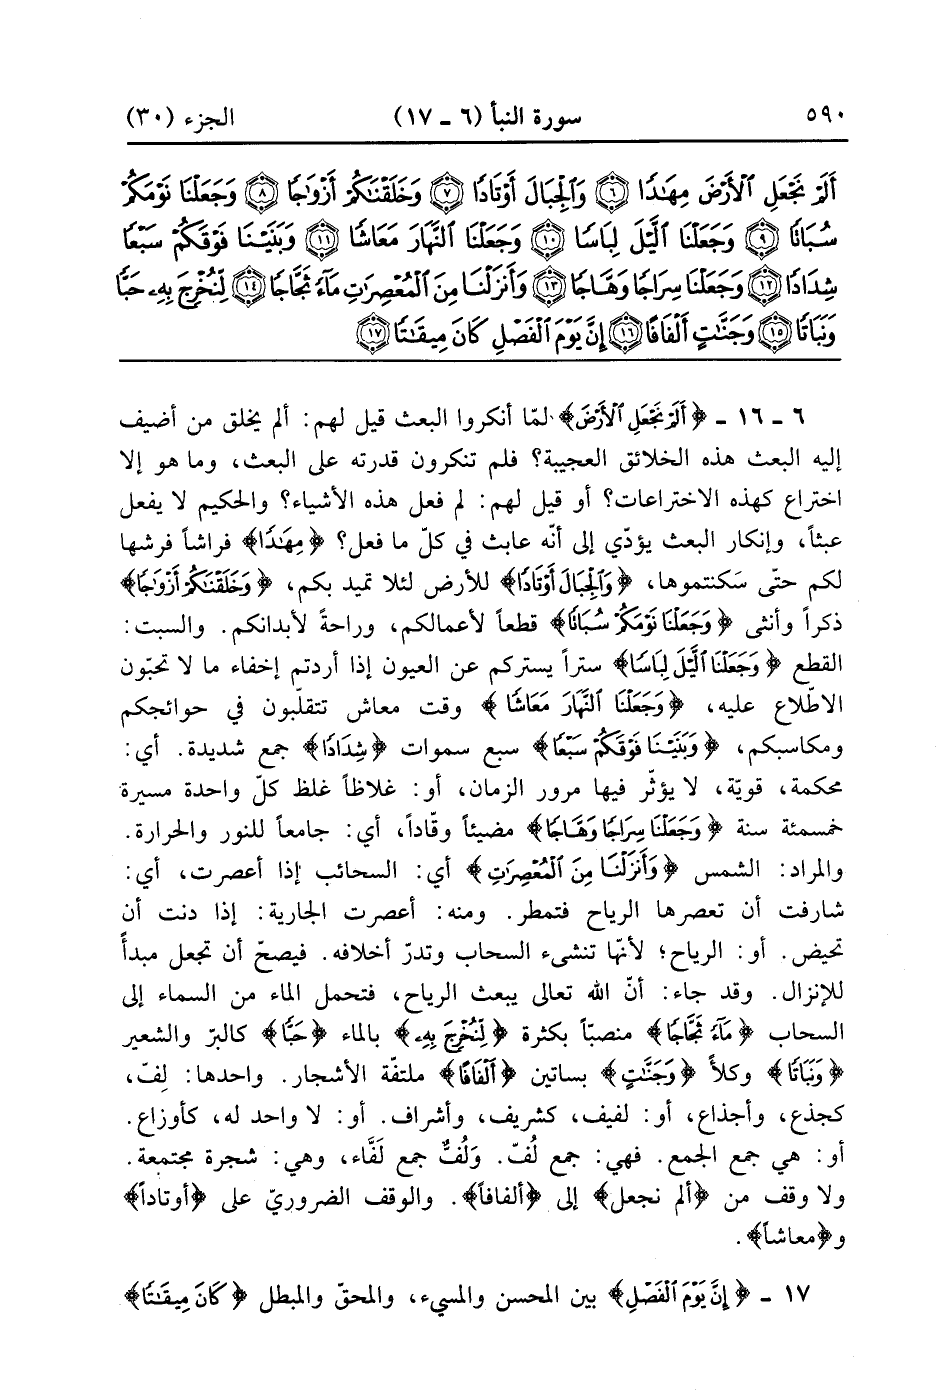 ٥٩٠ سورة النبأ (٦ ـ ١٧) الجزء (٣٠)
أَلَمْ نَجْعَلِ ٱلْأَرْضَ مِهَٰدًا ٦ وَٱلْجِبَالَ أَوْتَادًا ٧ وَخَلَقْنَٰكُمْ أَزْوَٰجًا ٨ وَجَعَلْنَا نَوْمَكُمْ
سُبَاتًا ٩ وَجَعَلْنَا ٱلَّيْلَ لِبَاسًا ١٠ وَجَعَلْنَا ٱلنَّهَارَ مَعَاشًا ١١ وَبَنَيْنَا فَوْقَكُمْ سَبْعًا
شِدَادًا ١٢ وَجَعَلْنَا سِرَاجًا وَهَّاجًا ١٣ وَأَنزَلْنَا مِنَ ٱلْمُعْصِرَٰتِ مَآءً ثَجَّاجًا ١٤ لِّنُخْرِجَ بِهِۦ حَبًّا
وَنَبَاتًا ١٥ وَجَنَّٰتٍ أَلْفَافًا ١٦ إِنَّ يَوْمَ ٱلْفَصْلِ كَانَ مِيقَٰتًا ١٧
٦ ـ ١٦ ـ ﴿أَلَمْ نَجْعَلِ ٱلْأَرْضَ﴾ لمّا أنكروا البعث قيل لهم: ألم يخلق من أضيف
إليه البعث هذه الخلائق العجيبة؟ فلم تنكرون قدرته على البعث، وما هو إلا
اختراع كهذه الاختراعات؟ أو قيل لهم: لم فعل هذه الأشياء؟ والحكيم لا يفعل
عبثاً، وإنكار البعث يؤدّي إلى أنّه عابث في كلّ ما فعل؟ ﴿مِهَٰدًا﴾ فراشاً فرشها
لكم حتّى سَكنتموها، ﴿وَٱلْجِبَالَ أَوْتَادًا﴾ للأرض لئلا تميد بكم، ﴿وَخَلَقْنَٰكُمْ أَزْوَٰجًا﴾
ذكراً وأنثى ﴿وَجَعَلْنَا نَوْمَكُمْ سُبَاتًا﴾ قطعاً لأعمالكم، وراحةً لأبدانكم. والسبت:
القطع ﴿وَجَعَلْنَا ٱلَّيْلَ لِبَاسًا﴾ ستراً يستركم عن العيون إذا أردتم إخفاء ما لا تحبّون
الاطّلاع عليه، ﴿وَجَعَلْنَا ٱلنَّهَارَ مَعَاشًا﴾ وقت معاش تتقلّبون في حوائجكم
ومكاسبكم، ﴿وَبَنَيْنَا فَوْقَكُمْ سَبْعًا﴾ سبع سموات ﴿شِدَادًا﴾ جمع شديدة. أي:
محكمة، قويّة، لا يؤثّر فيها مرور الزمان، أو: غلاظاً غلظ كلّ واحدة مسيرة
خمسمئة سنة ﴿وَجَعَلْنَا سِرَاجًا وَهَّاجًا﴾ مضيئاً وقّاداً، أي: جامعاً للنور والحرارة.
والمراد: الشمس ﴿وَأَنزَلْنَا مِنَ ٱلْمُعْصِرَٰتِ﴾ أي: السحائب إذا أعصرت، أي:
شارفت أن تعصرها الرياح فتمطر. ومنه: أعصرت الجارية: إذا دنت أن
تحيض. أو: الرياح؛ لأنّها تنشىء السحاب وتدرّ أخلافه. فيصحّ أن تجعل مبدأً
للإنزال. وقد جاء: أنّ الله تعالى يبعث الرياح، فتحمل الماء من السماء إلى
السحاب ﴿مَآءً ثَجَّاجًا﴾ منصبّاً بكثرة ﴿لِّنُخْرِجَ بِهِۦ﴾ بالماء ﴿حَبًّا﴾ كالبرّ والشعير
﴿وَنَبَاتًا﴾ وكلأً ﴿وَجَنَّٰتٍ﴾ بساتين ﴿أَلْفَافًا﴾ ملتفّة الأشجار. واحدها: لِفّ،
كجذع، وأجذاع، أو: لفيف، كشريف، وأشراف. أو: لا واحد له، كأوزاع.
أو: هي جمع الجمع. فهي: جمع لُفّ. وَلُفٌّ جمع لَفَّاء، وهي: شجرة مجتمعة.
ولا وقف من ﴿ألم نجعل﴾ إلى ﴿ألفافاً﴾. والوقف الضروريّ على ﴿أوتاداً﴾
و﴿معاشاً﴾.
١٧ ـ ﴿إِنَّ يَوْمَ ٱلْفَصْلِ﴾ بين المحسن والمسيء، والمحقّ والمبطل ﴿كَانَ مِيقَٰتًا﴾